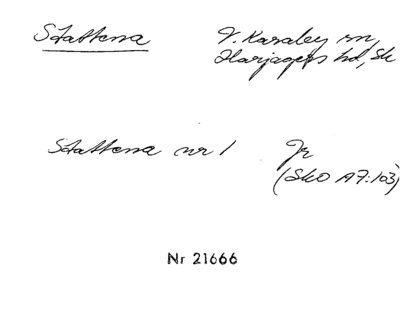 Stattena V. Karaby sn,
Harjagers hd, Sk
Stattena nr 1 Jr
(SkO A7:103)
Nr 21666